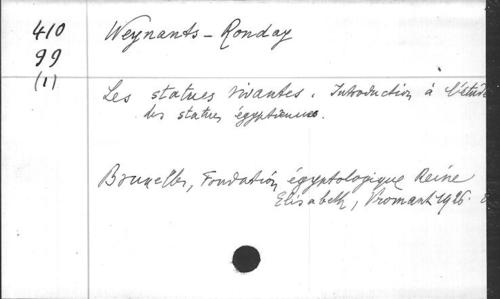 410
99
(1)
Weynants - Ronday
Les statues vivantes. Introduction à l'étude
des statues égyptiennes.
Bruxelles, Fondation égyptologique Reine
Elisabeth, Vromant 1926.